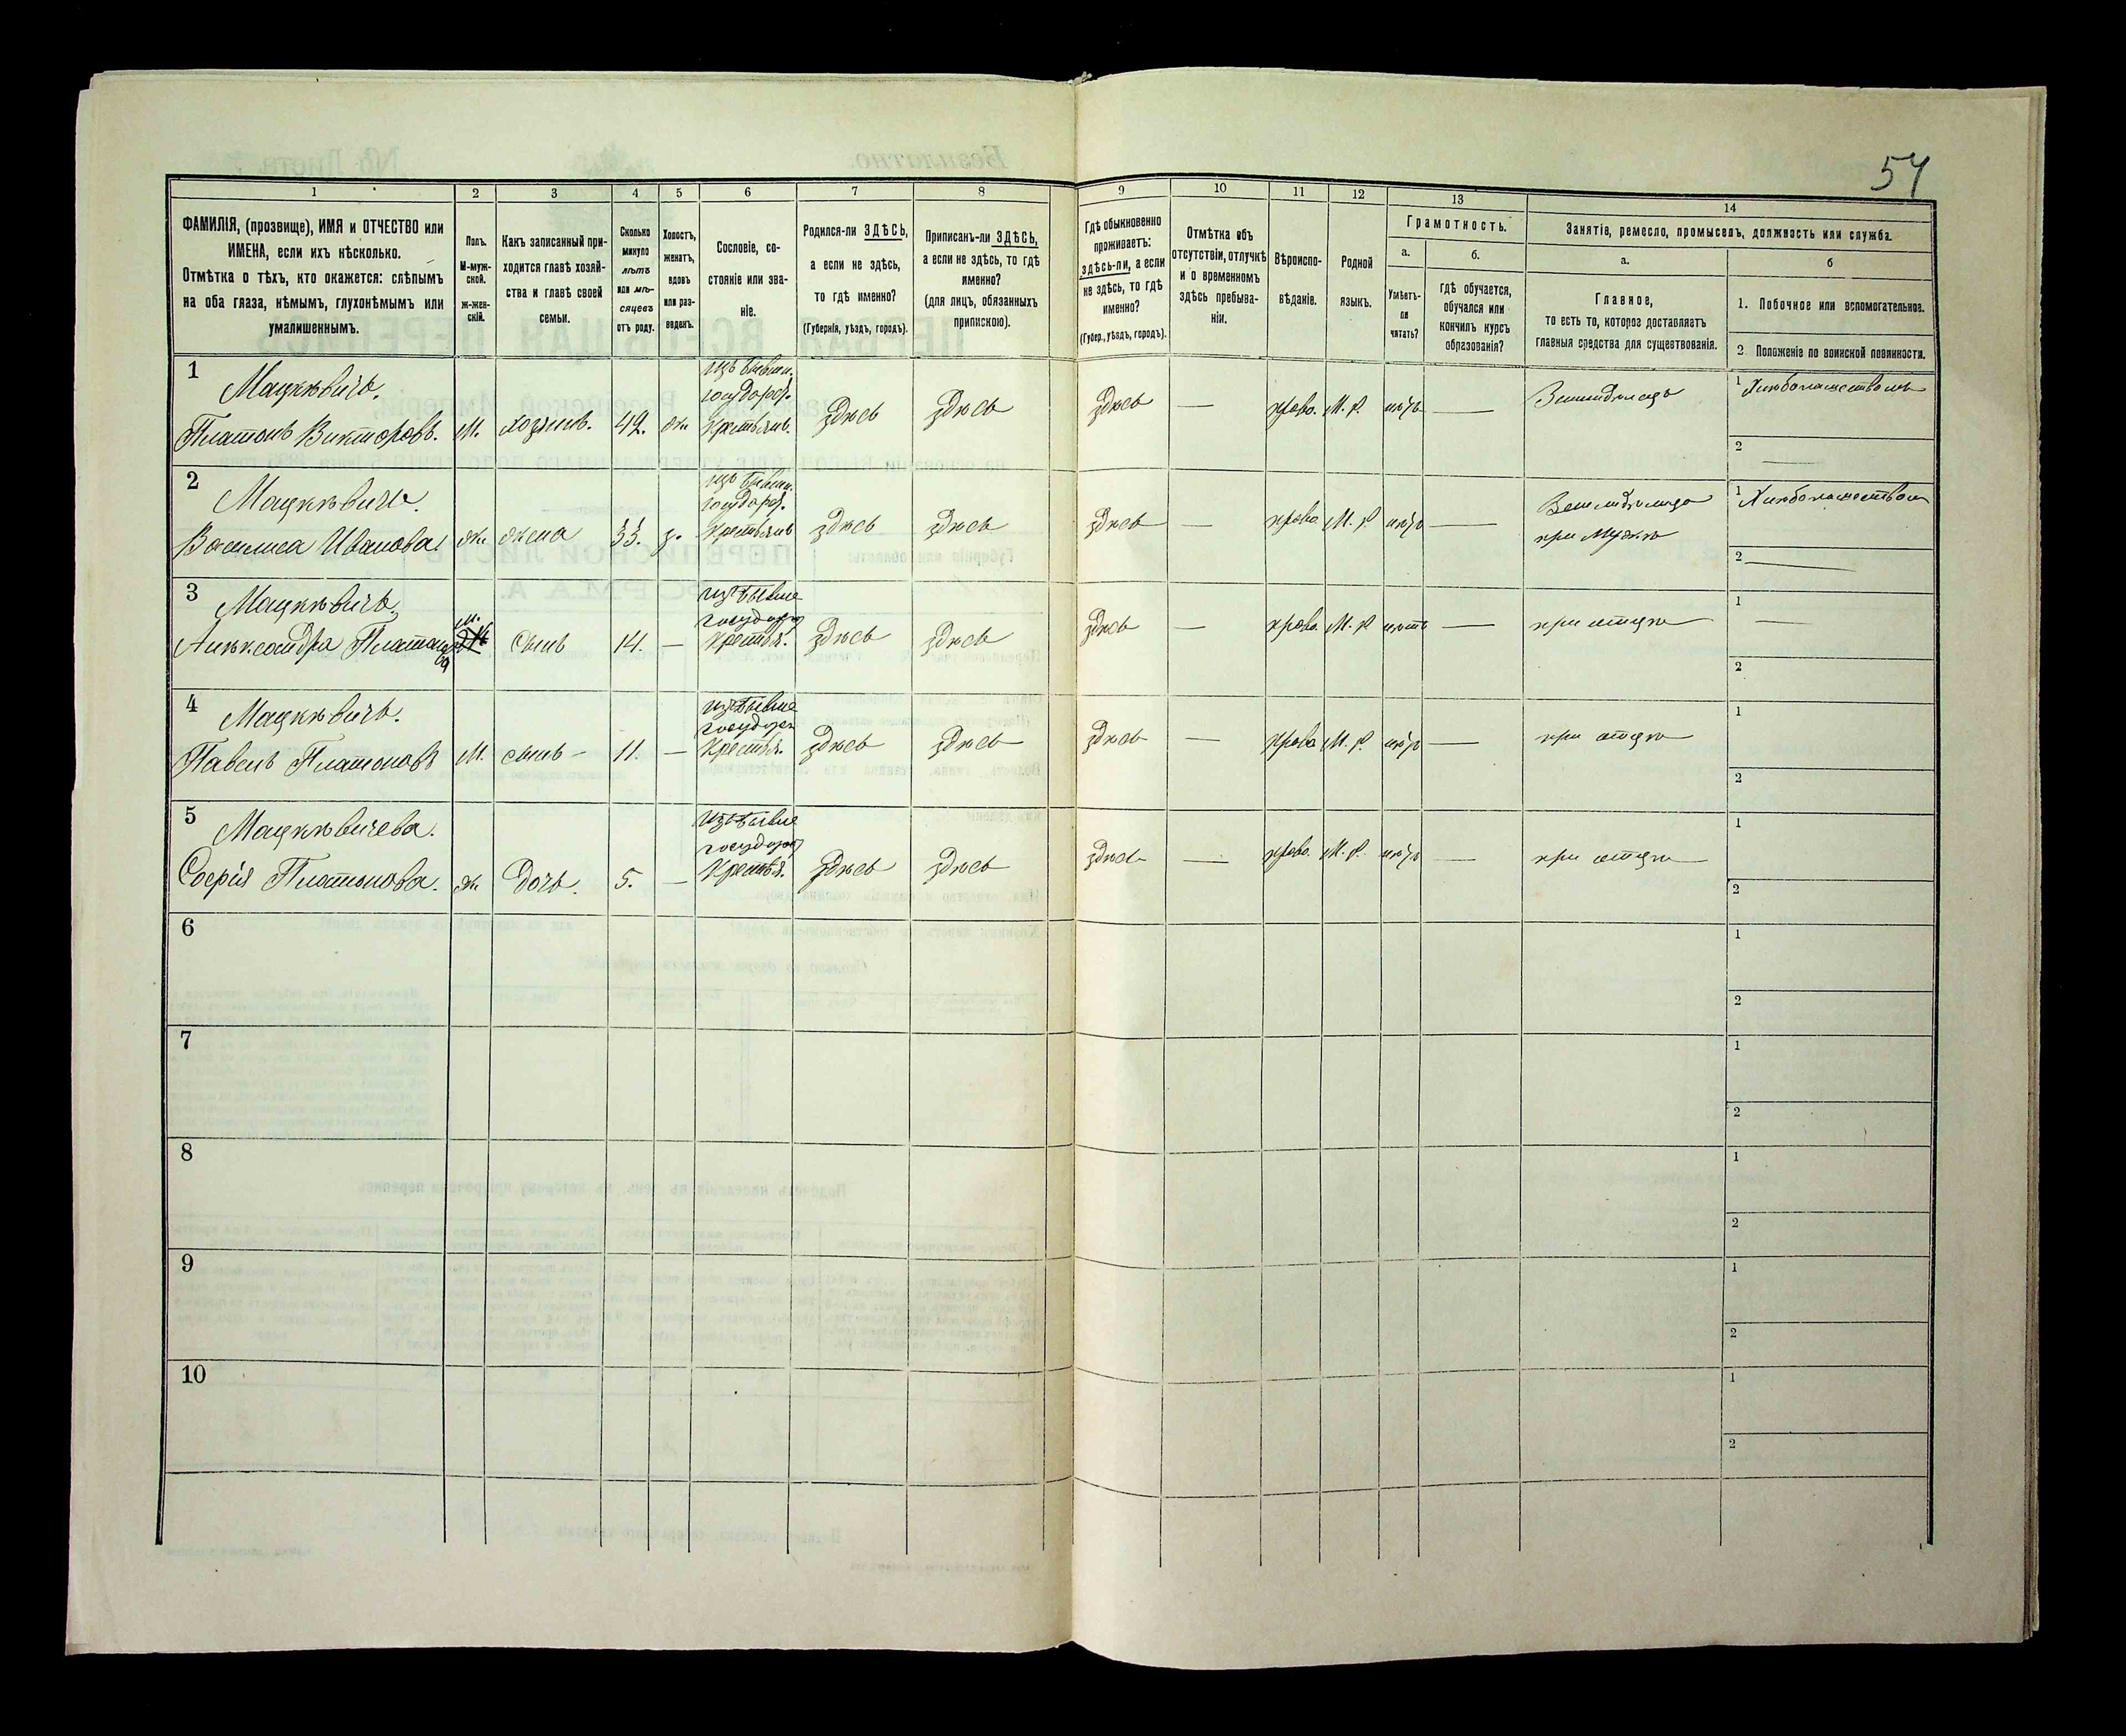 54
1 2 3 4 5 6 7 8 9 10 11 12 13 14
ФАМИЛІЯ, (прозвище), ИМЯ и ОТЧЕСТВО или
ИМЕНА, если ихъ нѣсколько.
Отмѣтка о тѣхъ, кто окажется: слѣпымъ
на оба глаза, нѣмымъ, глухонѣмымъ или
умалишеннымъ.
Полъ.
М-муж-
ской.
ж-жен-
скій.
Какъ записанный при-
ходится главѣ хозяй-
ства и главѣ своей
семьи.
Сколько
минуло
лѣтъ
или мѣ-
сяцевъ
отъ роду.
Холостъ,
женатъ,
вдовъ
или раз-
веденъ.
Сословіе, со-
стояніе или зва-
ніе.
Родился-ли ЗДѢСЬ,
а если не здѣсь,
то гдѣ именно?
(Губернія, уѣздъ, городъ).
Приписанъ-ли ЗДѢСЬ,
а если не здѣсь, то гдѣ
именно?
(для лицъ, обязанныхъ
припискою).
Гдѣ обыкновенно
проживаетъ:
здѣсь-ли, а если
не здѣсь, то гдѣ
именно?
(Губер., уѣздъ, городъ).
Отмѣтка объ
отсутствіи, отлучкѣ
и о временномъ
здѣсь пребыва-
ніи.
Вѣроиспо-
вѣданіе.
Родной
языкъ.
Грамотность.
а.
Умѣетъ-
ли
читать?
б.
гдѣ обучается,
обучался или
кончилъ курсъ
образованія?
Занятіе, ремесло, промыселъ, должность или служба.
а.
Главное,
то есть то, которое доставляетъ
главныя средства для существованія.
б
1. Побочное или вспомогательное.
2. Положеніе по воинской повинности.
1
Мацкѣвичъ.
Платонъ Викторовъ.
М.
хозяинъ.
42.
ж.
изъ бывш.
государ.
Крестьян.
здѣсь
здѣсь
здѣсь
—
право.
М. Р.
нѣт
—
Земледѣлецъ
1 Хлѣбопашествомъ
2 —
2
Мацкѣвичъ.
Василиса Иванова.
ж.
жена
33.
з.
изъ бывш.
государ.
Крестьянъ
здѣсь
здѣсь
здѣсь
—
право
М. Р
нѣт
—
Земледѣлица
при Мужѣ
1 Хлѣбопашеством
2 —
3
Мацкѣвичъ.
Алѣксандръ Платоно
въ
М.
сынъ
14.
—
изъ бывше
государ
Крестья.
здѣсь
здѣсь
здѣсь
—
право.
М. Р
нѣтъ
—
при отцѣ
1 —
2
4
Мацкѣвичъ.
Павелъ Платоновъ
М.
сынъ -
11.
—
изъ бывше
государ
Крестья.
здѣсь
здѣсь
здѣсь
—
право
М. Р.
нѣт
—
при отцѣ
1
2
5
Мацкѣвичева.
Софія Платонова.
ж.
дочь.
5.
—
изъ бывше
государ
Крестья.
здѣсь
здѣсь
здѣсь
—
право.
М. Р.
нѣт
—
при отцѣ
1
2
6
1
2
7
1
2
8
1
2
9
1
2
10
1
2